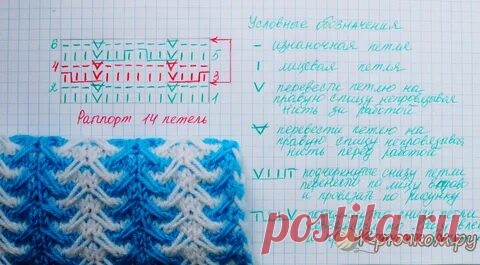 Условные обозначения
– изнаночная петля
| лицевая петля
V перевести петлю на
правую спицу непровязывая
нить за работой
перевести петлю на
правую спицу непровязывая
нить перед работой
подчеркнутые снизу петли
перенести по лиц. вправо
и провязать по рисунку
6
5
4
3
2
1
Раппорт 14 петель
postila.ru
Крючком.ру